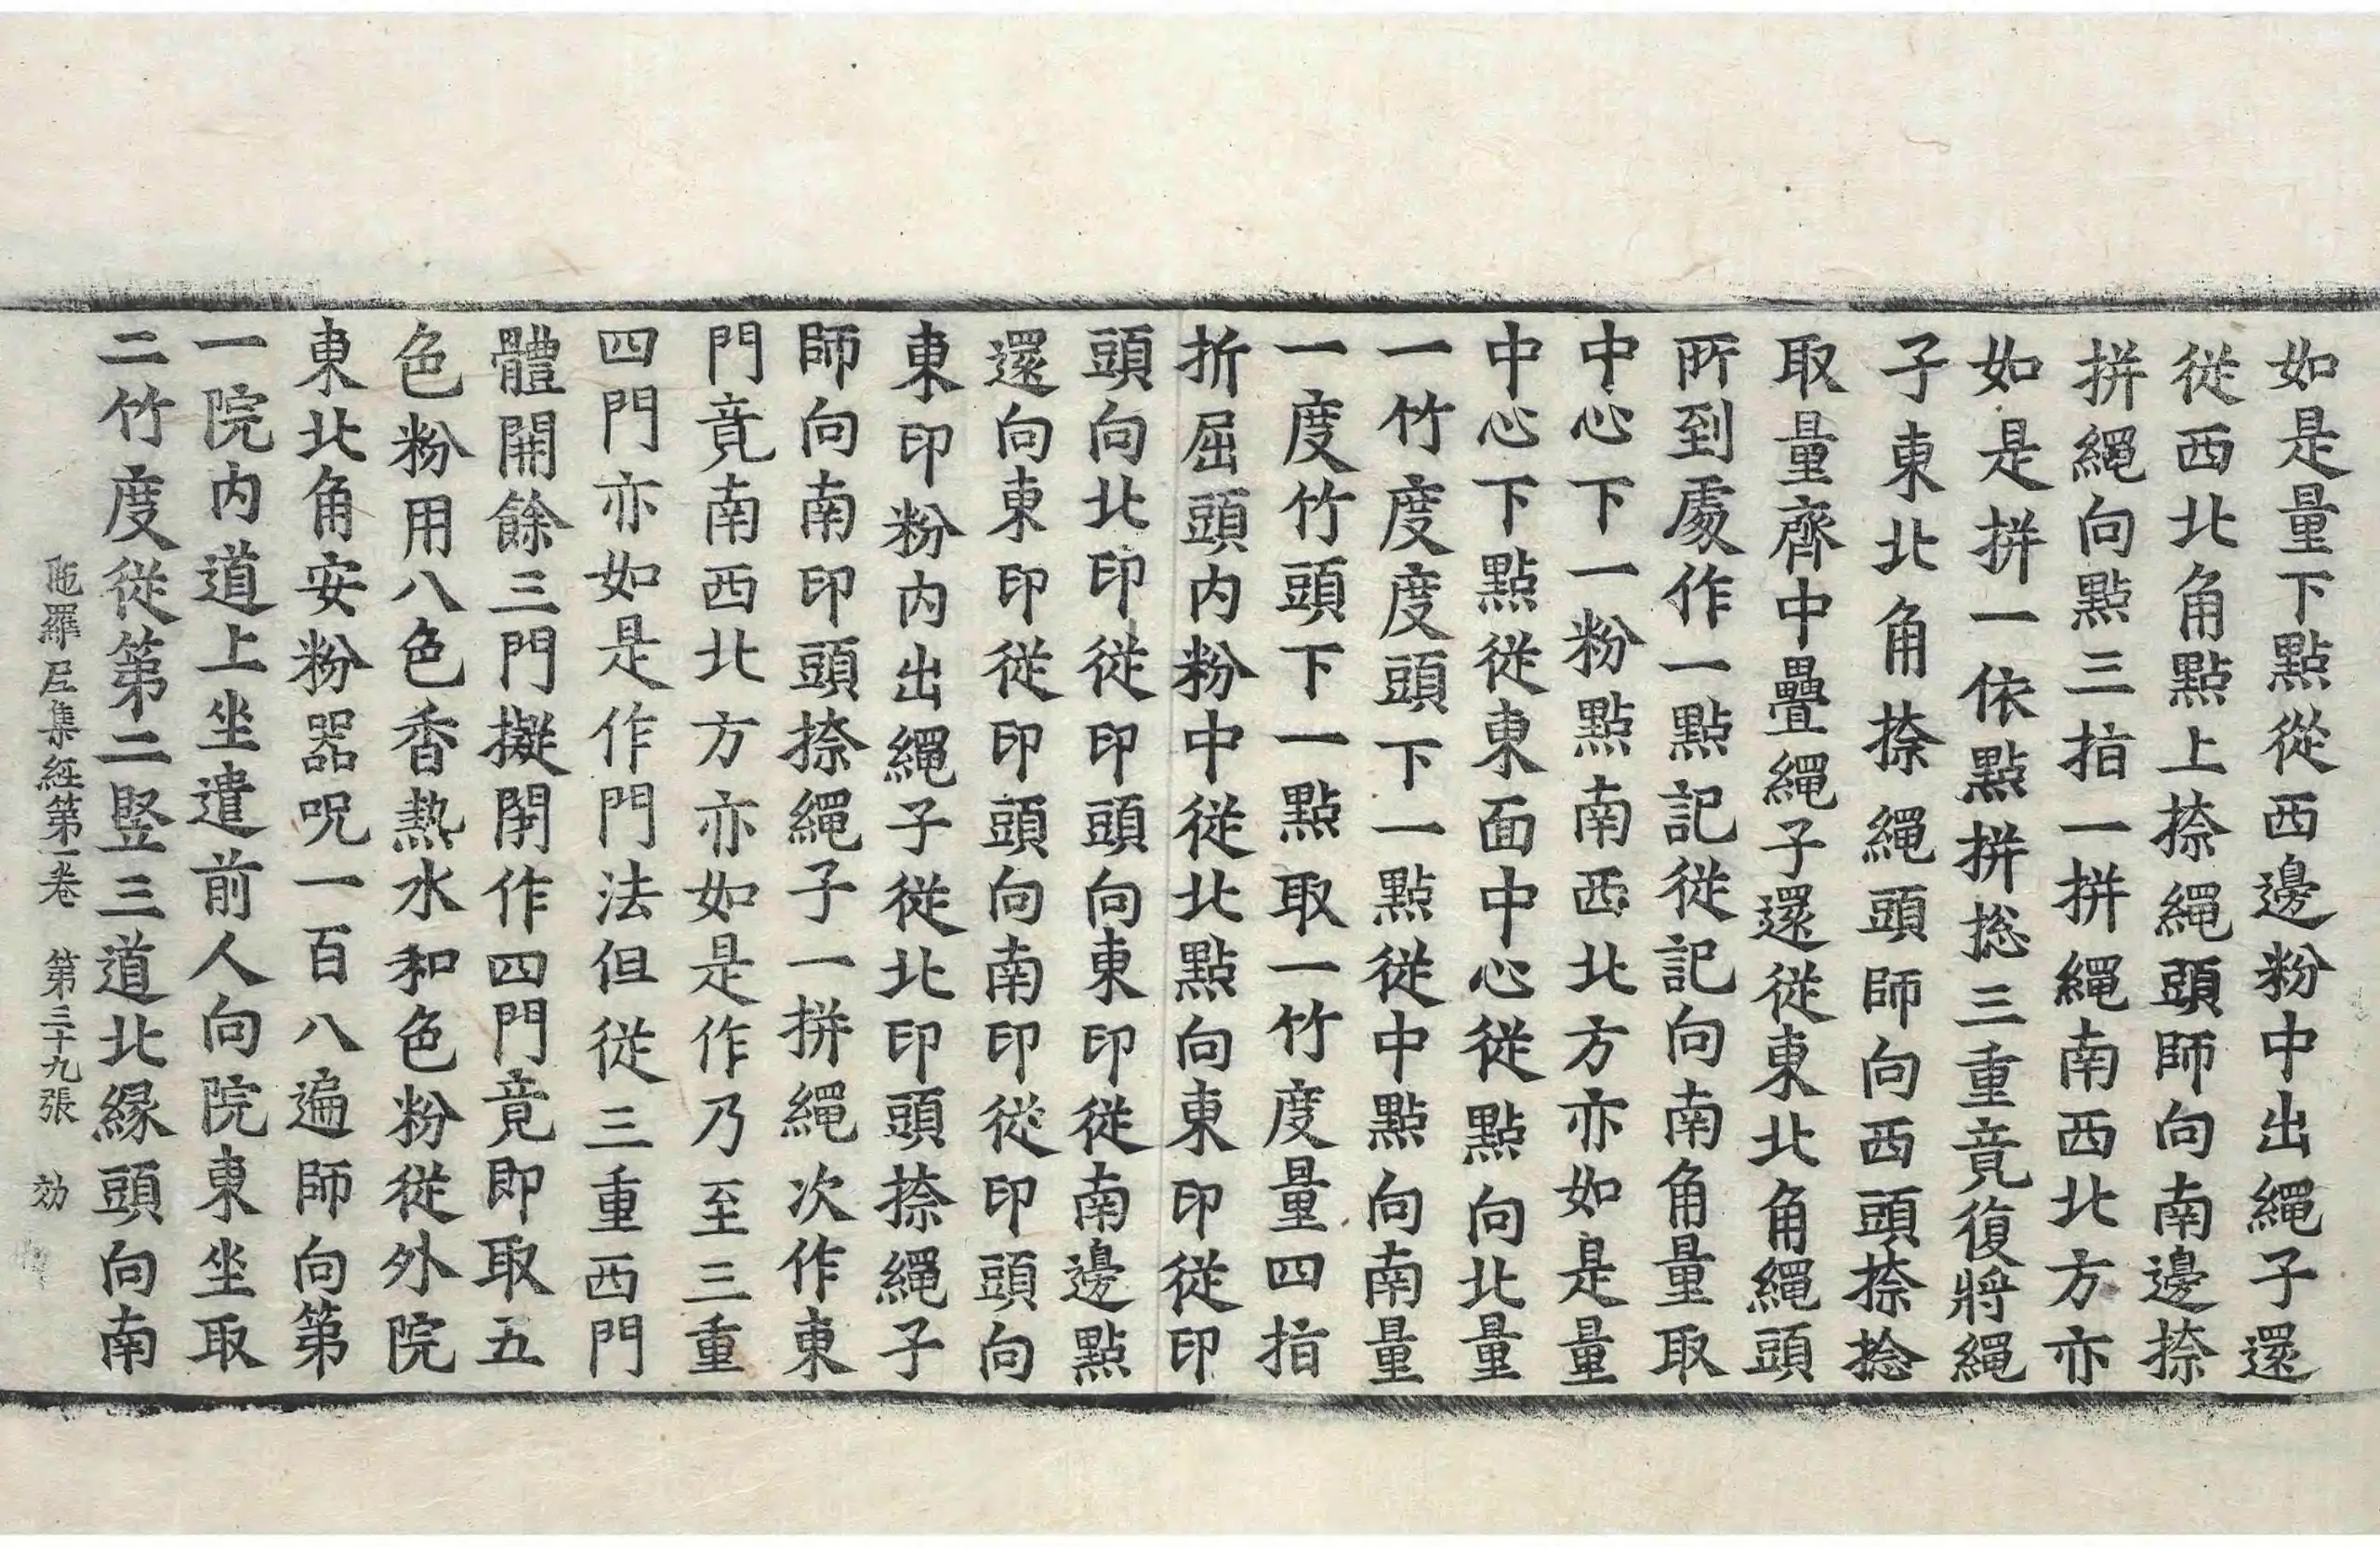 如是量下點從西邊粉中出繩子還
從西北角點上捺繩頭師向南邊捺
拼繩向點三指一拼繩南西北方亦
如是拼一一依點拼捴三重竟復將繩
子東北角捺繩頭師向西頭捺捻
取量齊中疊繩子還從東北角繩頭
所到處作一點記從記向南角量取
中心下一粉點南西北方亦如是量
中心下點從東面中心從點向北量
一竹度度頭下一點從中點向南量
一度竹頭下一點取一竹度量四指
折屈頭内粉中從北點向東印從印
頭向北印從印頭向東印從南邊點
還向東印從印頭向南印從印頭向
東印粉内出繩子從北印頭捺繩子
師向南印頭捺繩子一拼繩次作東
門竟南西北方亦如是作乃至三重
四門亦如是作門法但從三重西門
體開餘三門擬閇作四門竟即取五
色粉用八色香熱水和色粉從外院
東北角安粉器呪一百八遍師向第
一院内道上坐遣前人向院東坐取
二竹度從第二竪三道北緣頭向南
陁羅尼集經第一卷 第三十九張 効